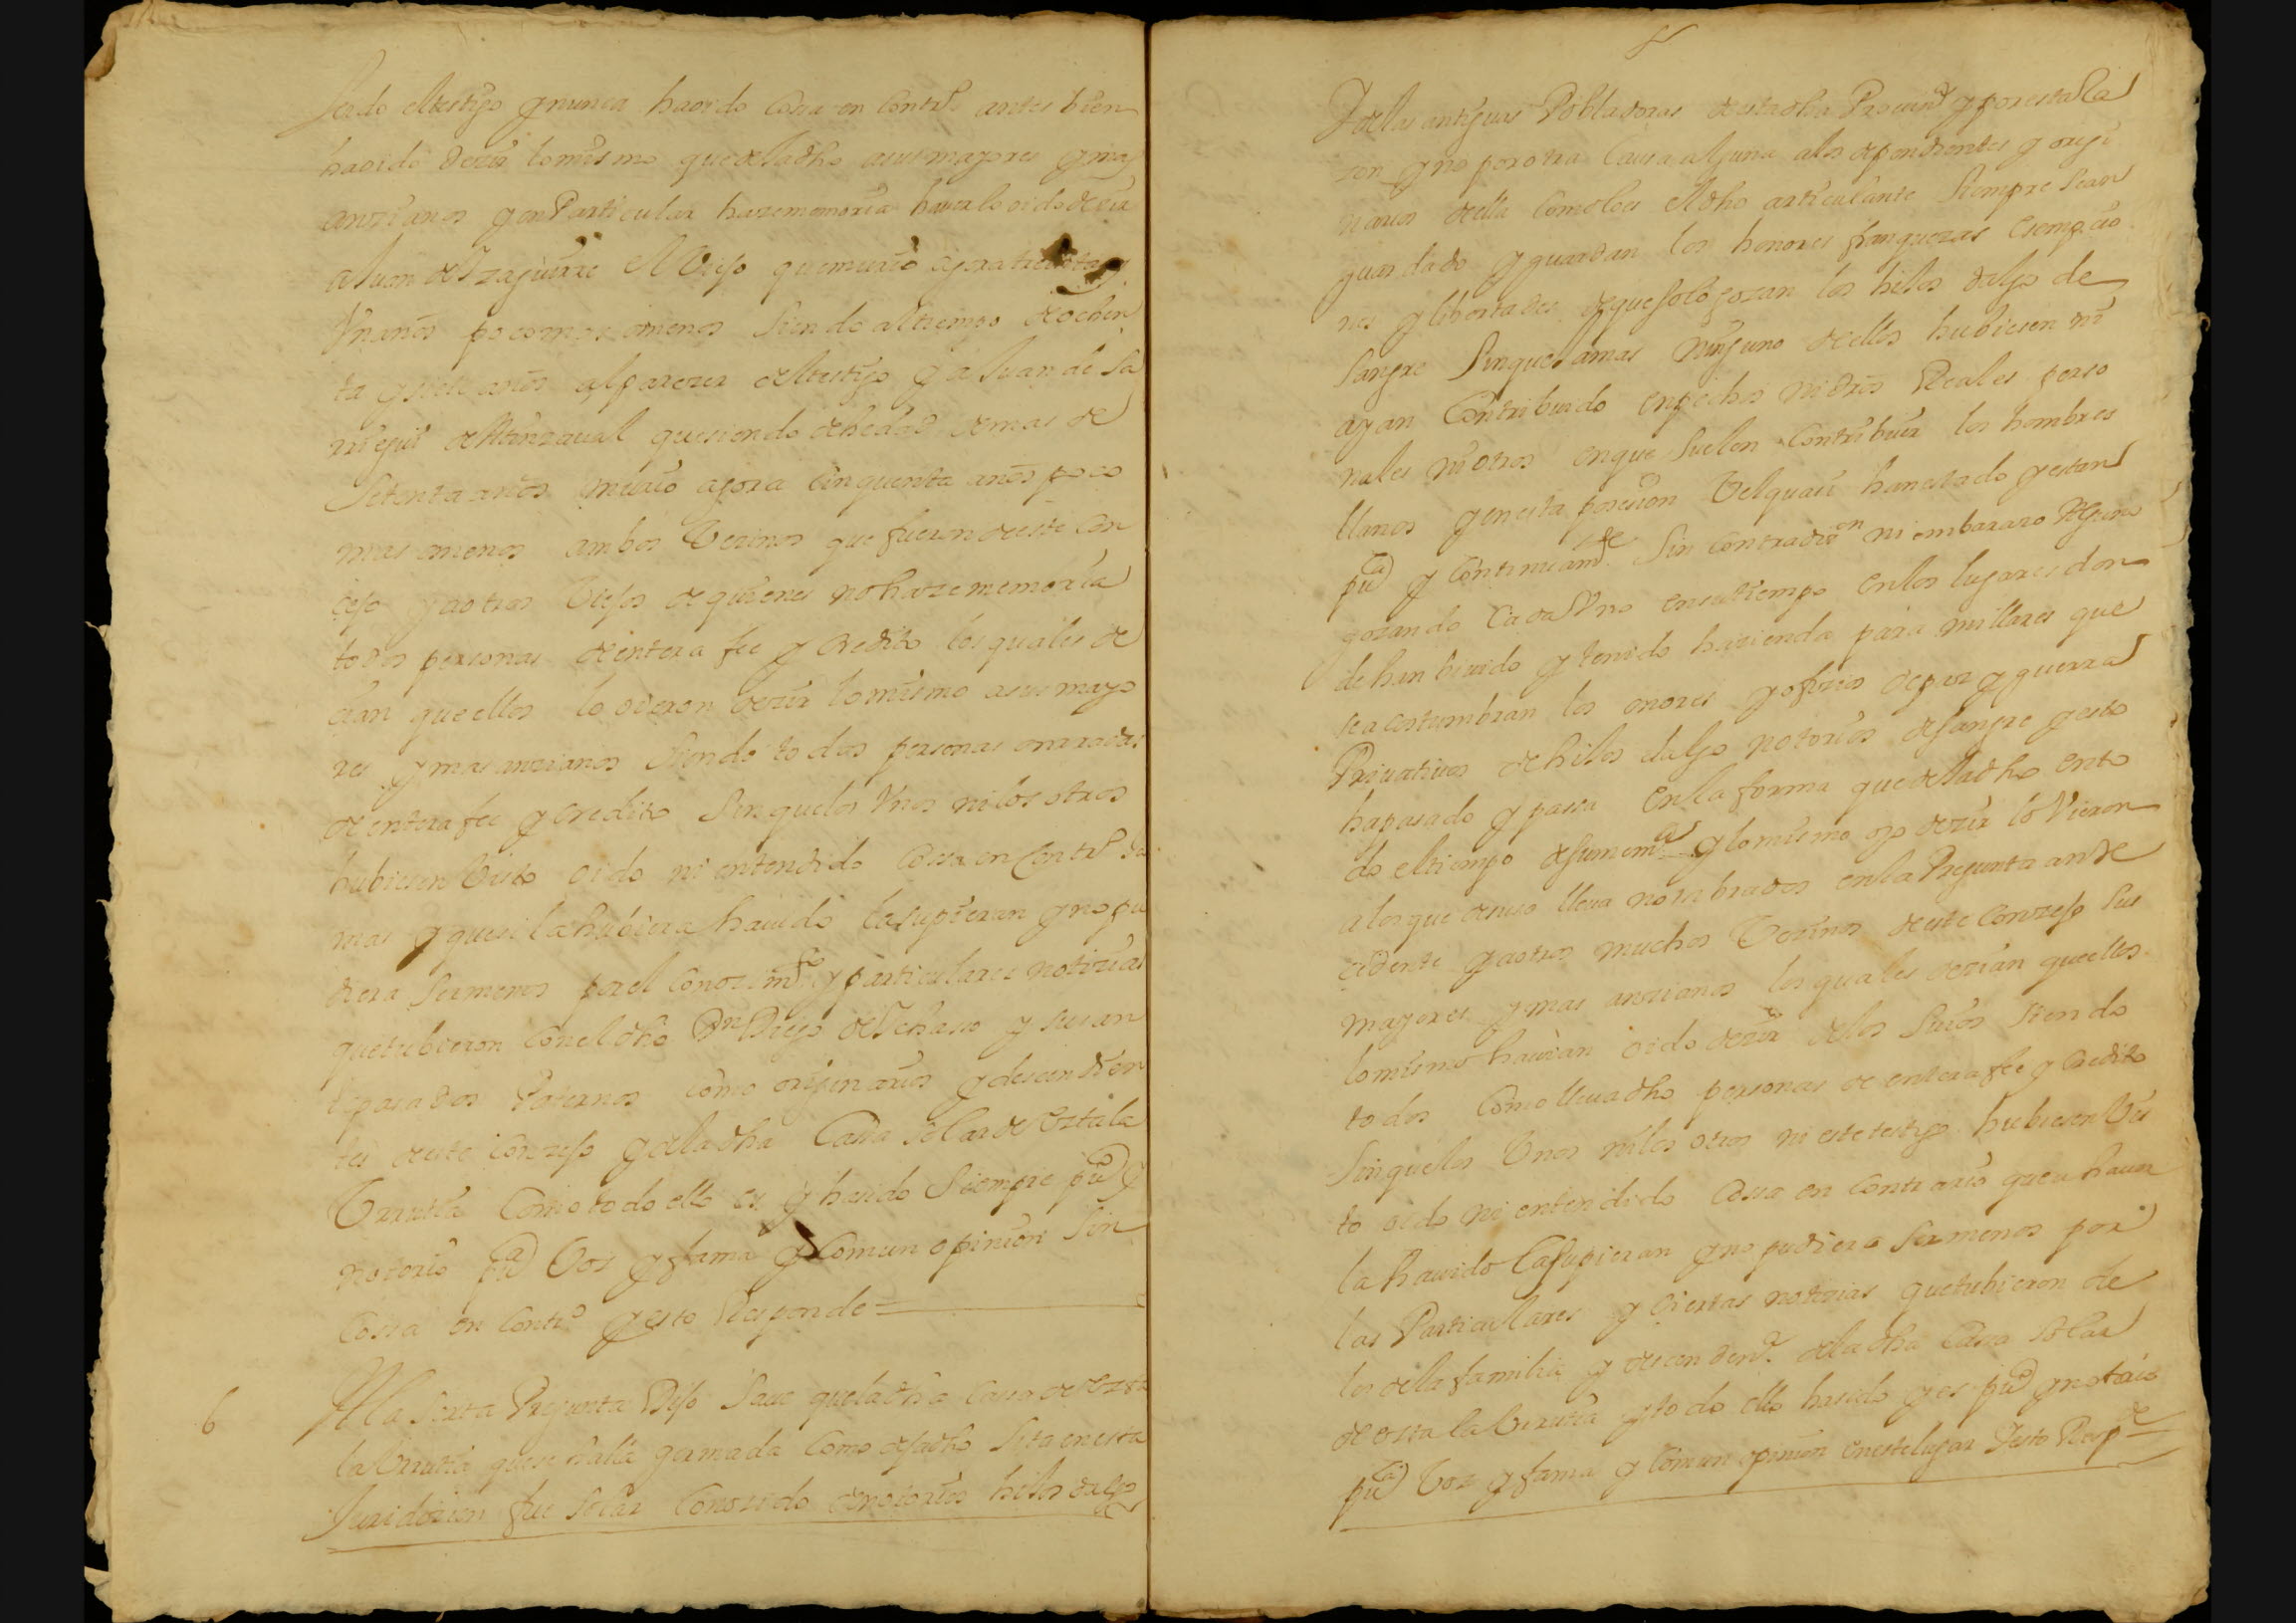 sido el testigo y nunca ha oido cosa en contro antes bien
ha oido dezir lo mismo que lleba dho a sus mayores y mas
anzianos y en Particular haze memoria haverlo oido dezir
a Juan de Yzaguirre el Viejo que murio agora treinta y
Un años poco mas o menos siendo al tiempo de ochen
ta y siete años al parezer del testigo y a Juan de Sa
que siendo de hedad de mas de
Setenta años murio agora cinquenta años poco
mas o menos ambos Vezinos que fueron de este con
cejo y a otros Viejos de quienes no haze memoria
todos personas de entera fee y credito los quales de
cian que ellos lo oieron dezir lo mismo a sus mayo
res y mas anzianos siendo todos personas onrradas
de entera fee y credito sin que los Unos ni los otros
hubiesen Visto oido ni entendido cossa en contro
mas y que si la hubiera havido la supieran y no pu
diera ser menos por el conozimto y particulares notizias
que tubieron con el dho Dn Diego de Echave y sus an
tepasados Paternos como originarios y descendien
tes de este conzejo y de la dha Cassa solar de Oztala
Vrrutia como todo ello es y ha sido siempre puco y
notorio puca Voz y fama y comun opinion sin
Cossa en contro y esto Responde =
6 A la sexta Pregunta Dijo Save que la dha Casa de Ozta
la Vrrutia que se halla y armada como dejadho sita en esta
Juridizion fue solar conozido de notorios hijos dalgo
Y de las antiguas Pobladoras de esta dha Provina y por esta Ra
zon y no por otra causa alguna a los dependientes y origi
narios de ella como lo es el dho articulante siempre sean
guardado y guardan los honores franquezas esempcio
nes y libertades de que solo gozan los hijos dalgo de
sangre sin que Jamas ninguno de ellos hubiesen ni
ayan Contribuido en pechos ni dros Reales perso
nales ni otros en que suelen Contribuir los hombres
llanos y en esta posesion Velquasi han estado y estan
puca y continuamte sin contradion ni embarazo Alguno
gozando cada Vno en su tiempo en los lugares don
de han bivido y tenido hazienda para millares que
se acostumbran los onores y ofizios de paz y guerra
Privativos de hijos dalgo notorios de sangre y esto
ha pasado y passa en la forma que lleba dho en to
do el tiempo de su mema y lo mismo oyo dezir lo Vieron
a los que de suso lleva nombrados en la Pregunta ante
cedente y a otros muchos Vezinos de este conzejo sus
mayores y mas anzianos los quales dezian que ellos
lo mismo havian oido dezir a los suios siendo
todos como lleva dho personas de entera fee y credito
sin que los Vnos ni los otros ni este testigo hubiesen Vis
to oido ni entendido cossa en contrario que a haver
la havido la supieran y no pudiera ser menos por
las Particulares y ciertas notizias que tubieron de
los de la familia y dezendena de la dha Cassa solar
de Oztala Vrrutia y todo ello ha sido y es puco y notorio
puca Voz y fama y comun opinion en este lugar y esto Respde =